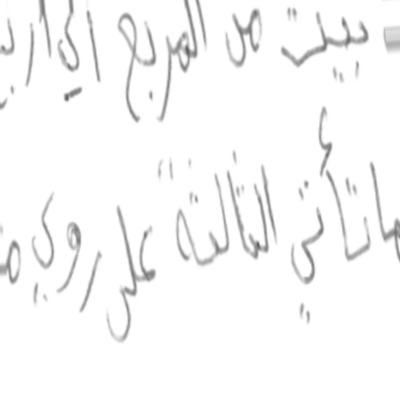 بيت من المربع الى اربـ
ما تأتي الثالثة على روي مـ